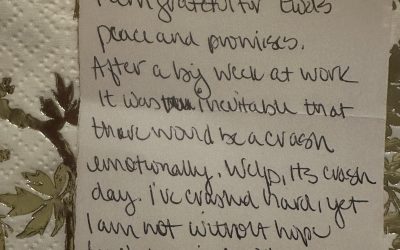 I am grateful for God's
peace and promises.
After a big week at work
It was inevitable that
there would be a crash
emotionally. Welp, its crash
day. I've crashed hard, yet
I am not without hope